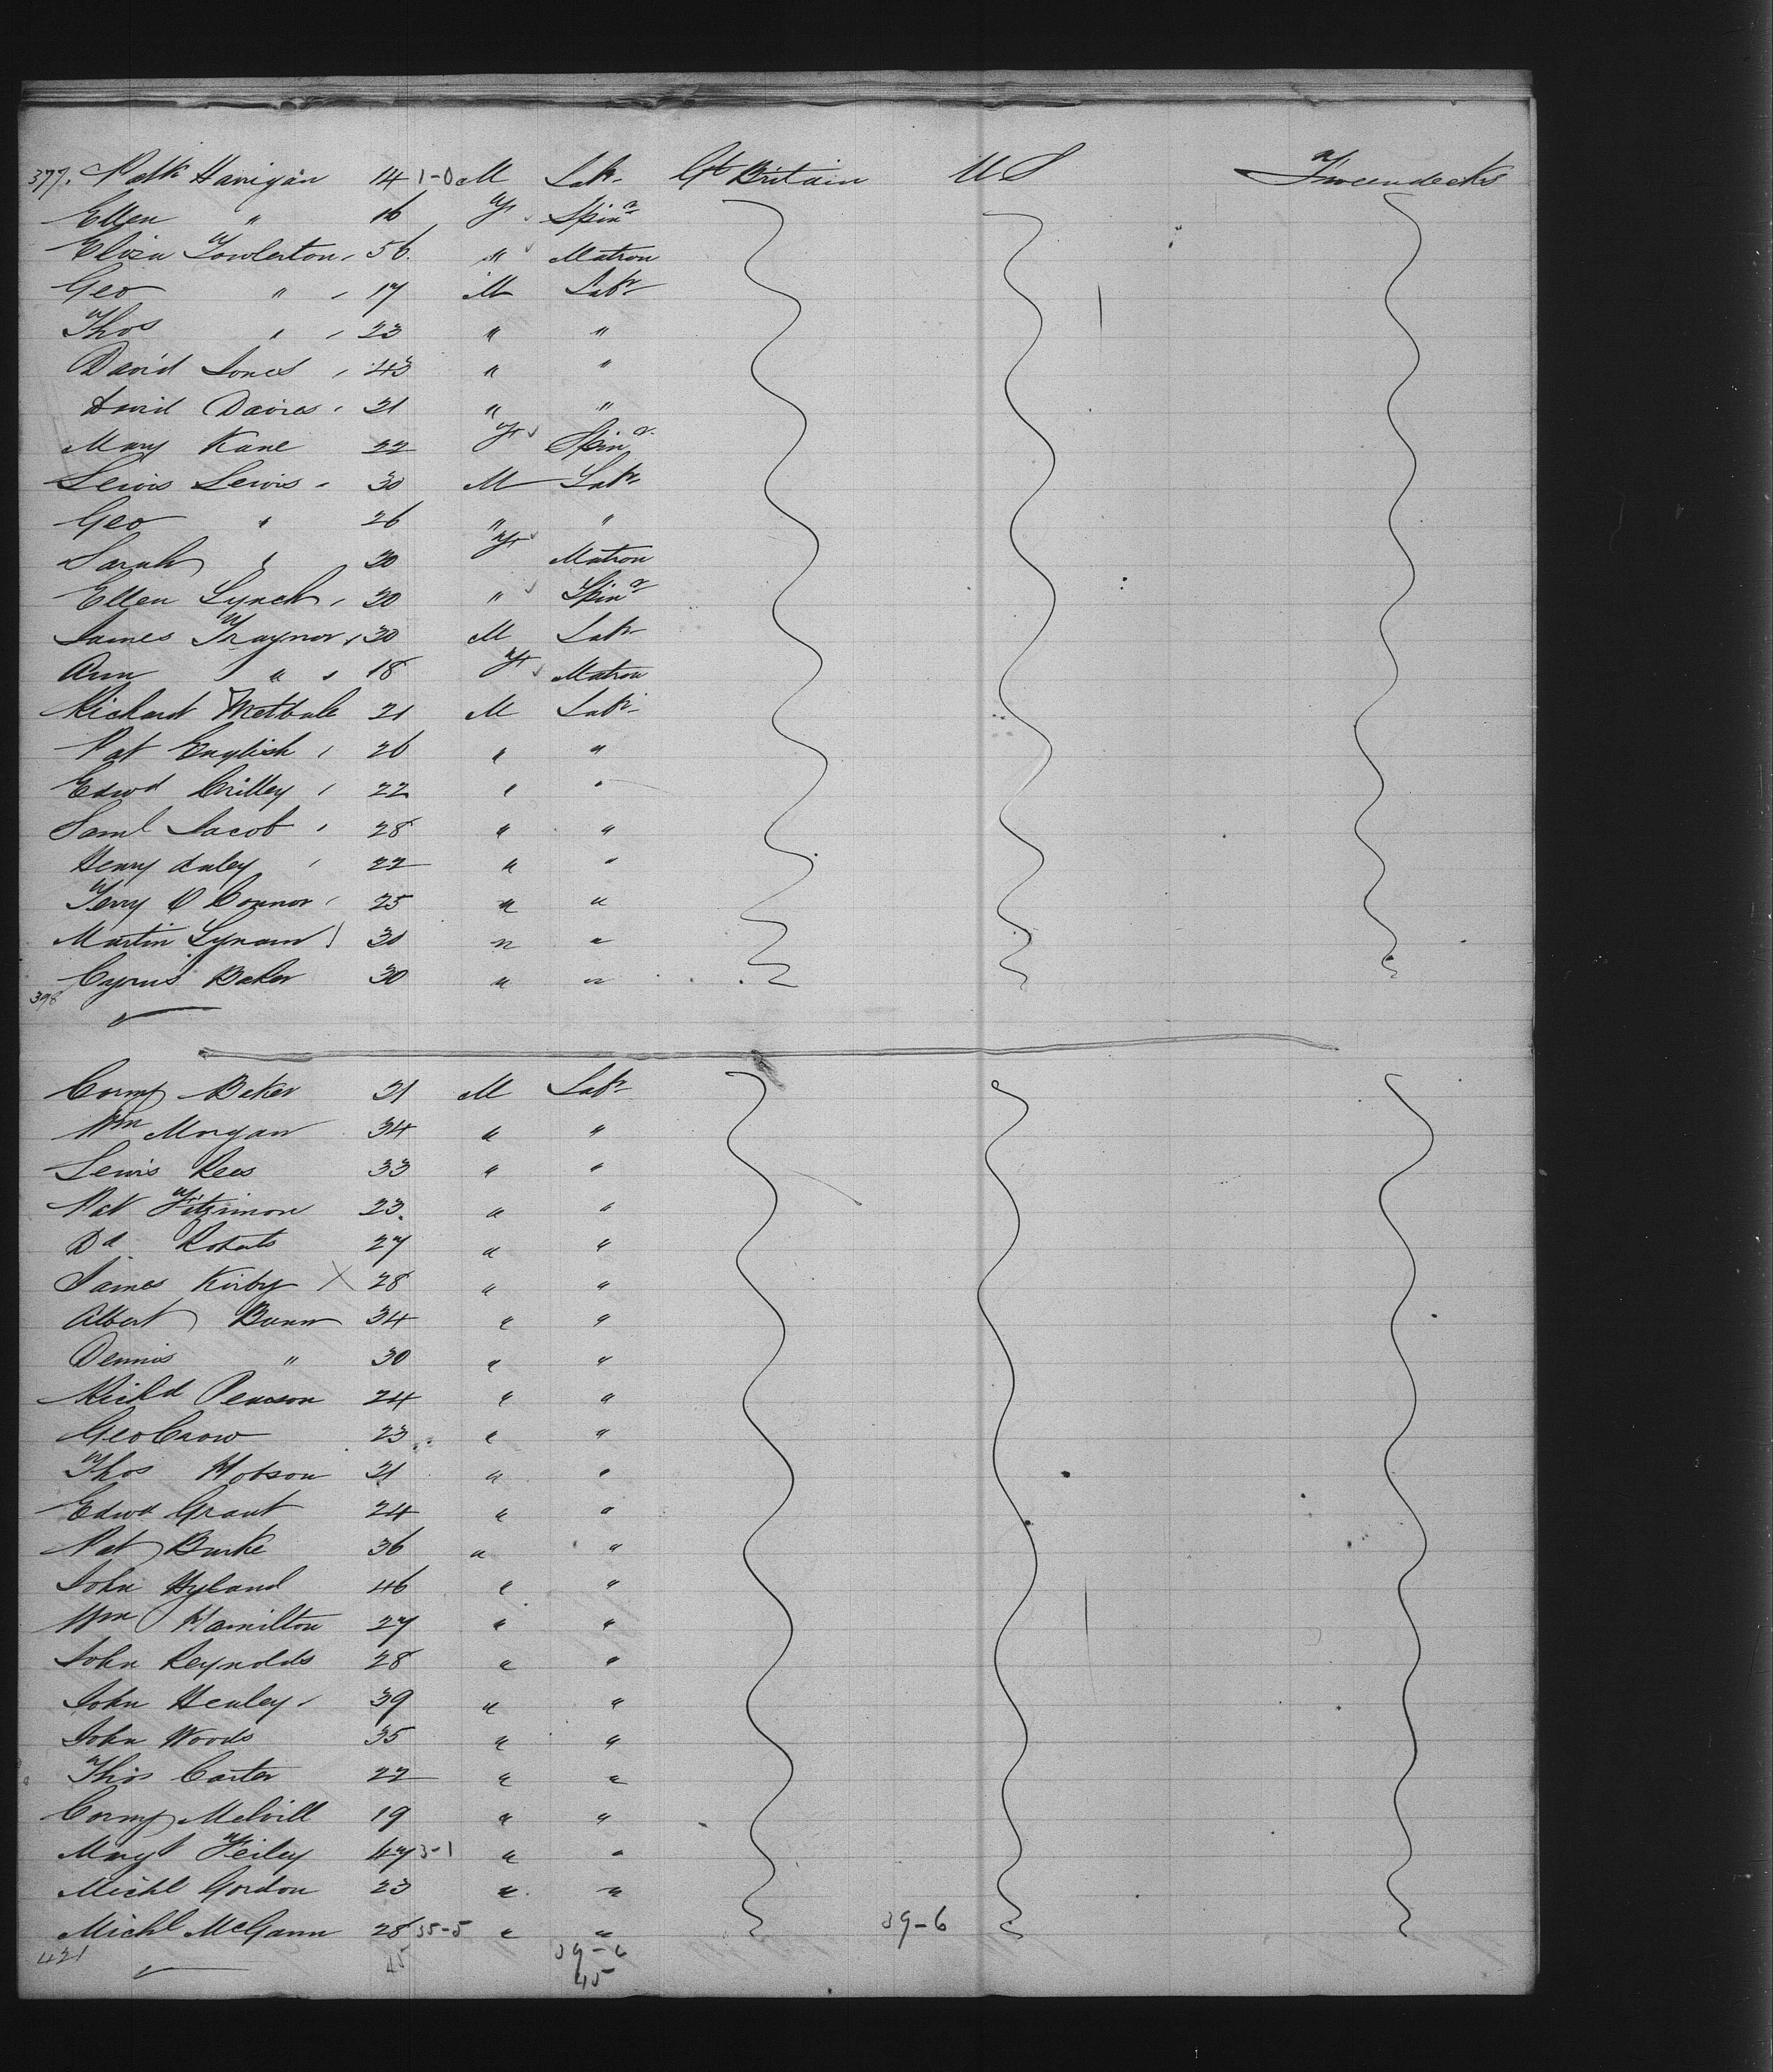 377. Patk Hanigan 14 1-0 M Labr Gt Britain U S Tweendecks
Ellen " 16 F Spinr
Eliza Towlerton 56 " Matron
Geo " 17 M Labr
Thos " 23 " "
David Jones 43 " "
David Davies 21 " "
Mary Kane 22 F Spinr
Lewis Lewis 30 M Labr
Geo " 26 " "
Sarah " 30 F Matron
Ellen Lynch 30 " Spinr
James Traynor 30 M Labr
Ann " 18 F Matron
Richard 21 M Labr
Pat English 26 " "
Edwd Crilley 22 " "
Saml Jacob 28 " "
Henry daley 22 " "
Terry O Connor 25 " "
Martin Lynam 30 " "
Cyrus Baker 30 " "
398
Baker 31 M Labr
Wm Morgan 34 " "
Lewis Rees 33 " "
Pat Fitzimon 23 " "
Dd Roberts 27 " "
James Kirby X 28 " "
Albert Bunn 34 " "
Dennis " 30 " "
Richd Pearson 24 " "
Geo Crow 23 " "
Thos Hobson 21 " "
Edwd Grant 24 " "
Pat Burke 36 " "
John Hyland 46 " "
Wm Hamilton 27 " "
John Reynolds 28 " "
John Henley 39 " "
John Woods 35 " "
Thos Carter 22 " "
Melvill 19 " "
Margt Feiley 47 3-1 " "
Michl Gordon 23 " "
Michl McGann 28 35-5 " " 39-6
421 45 39-6
45